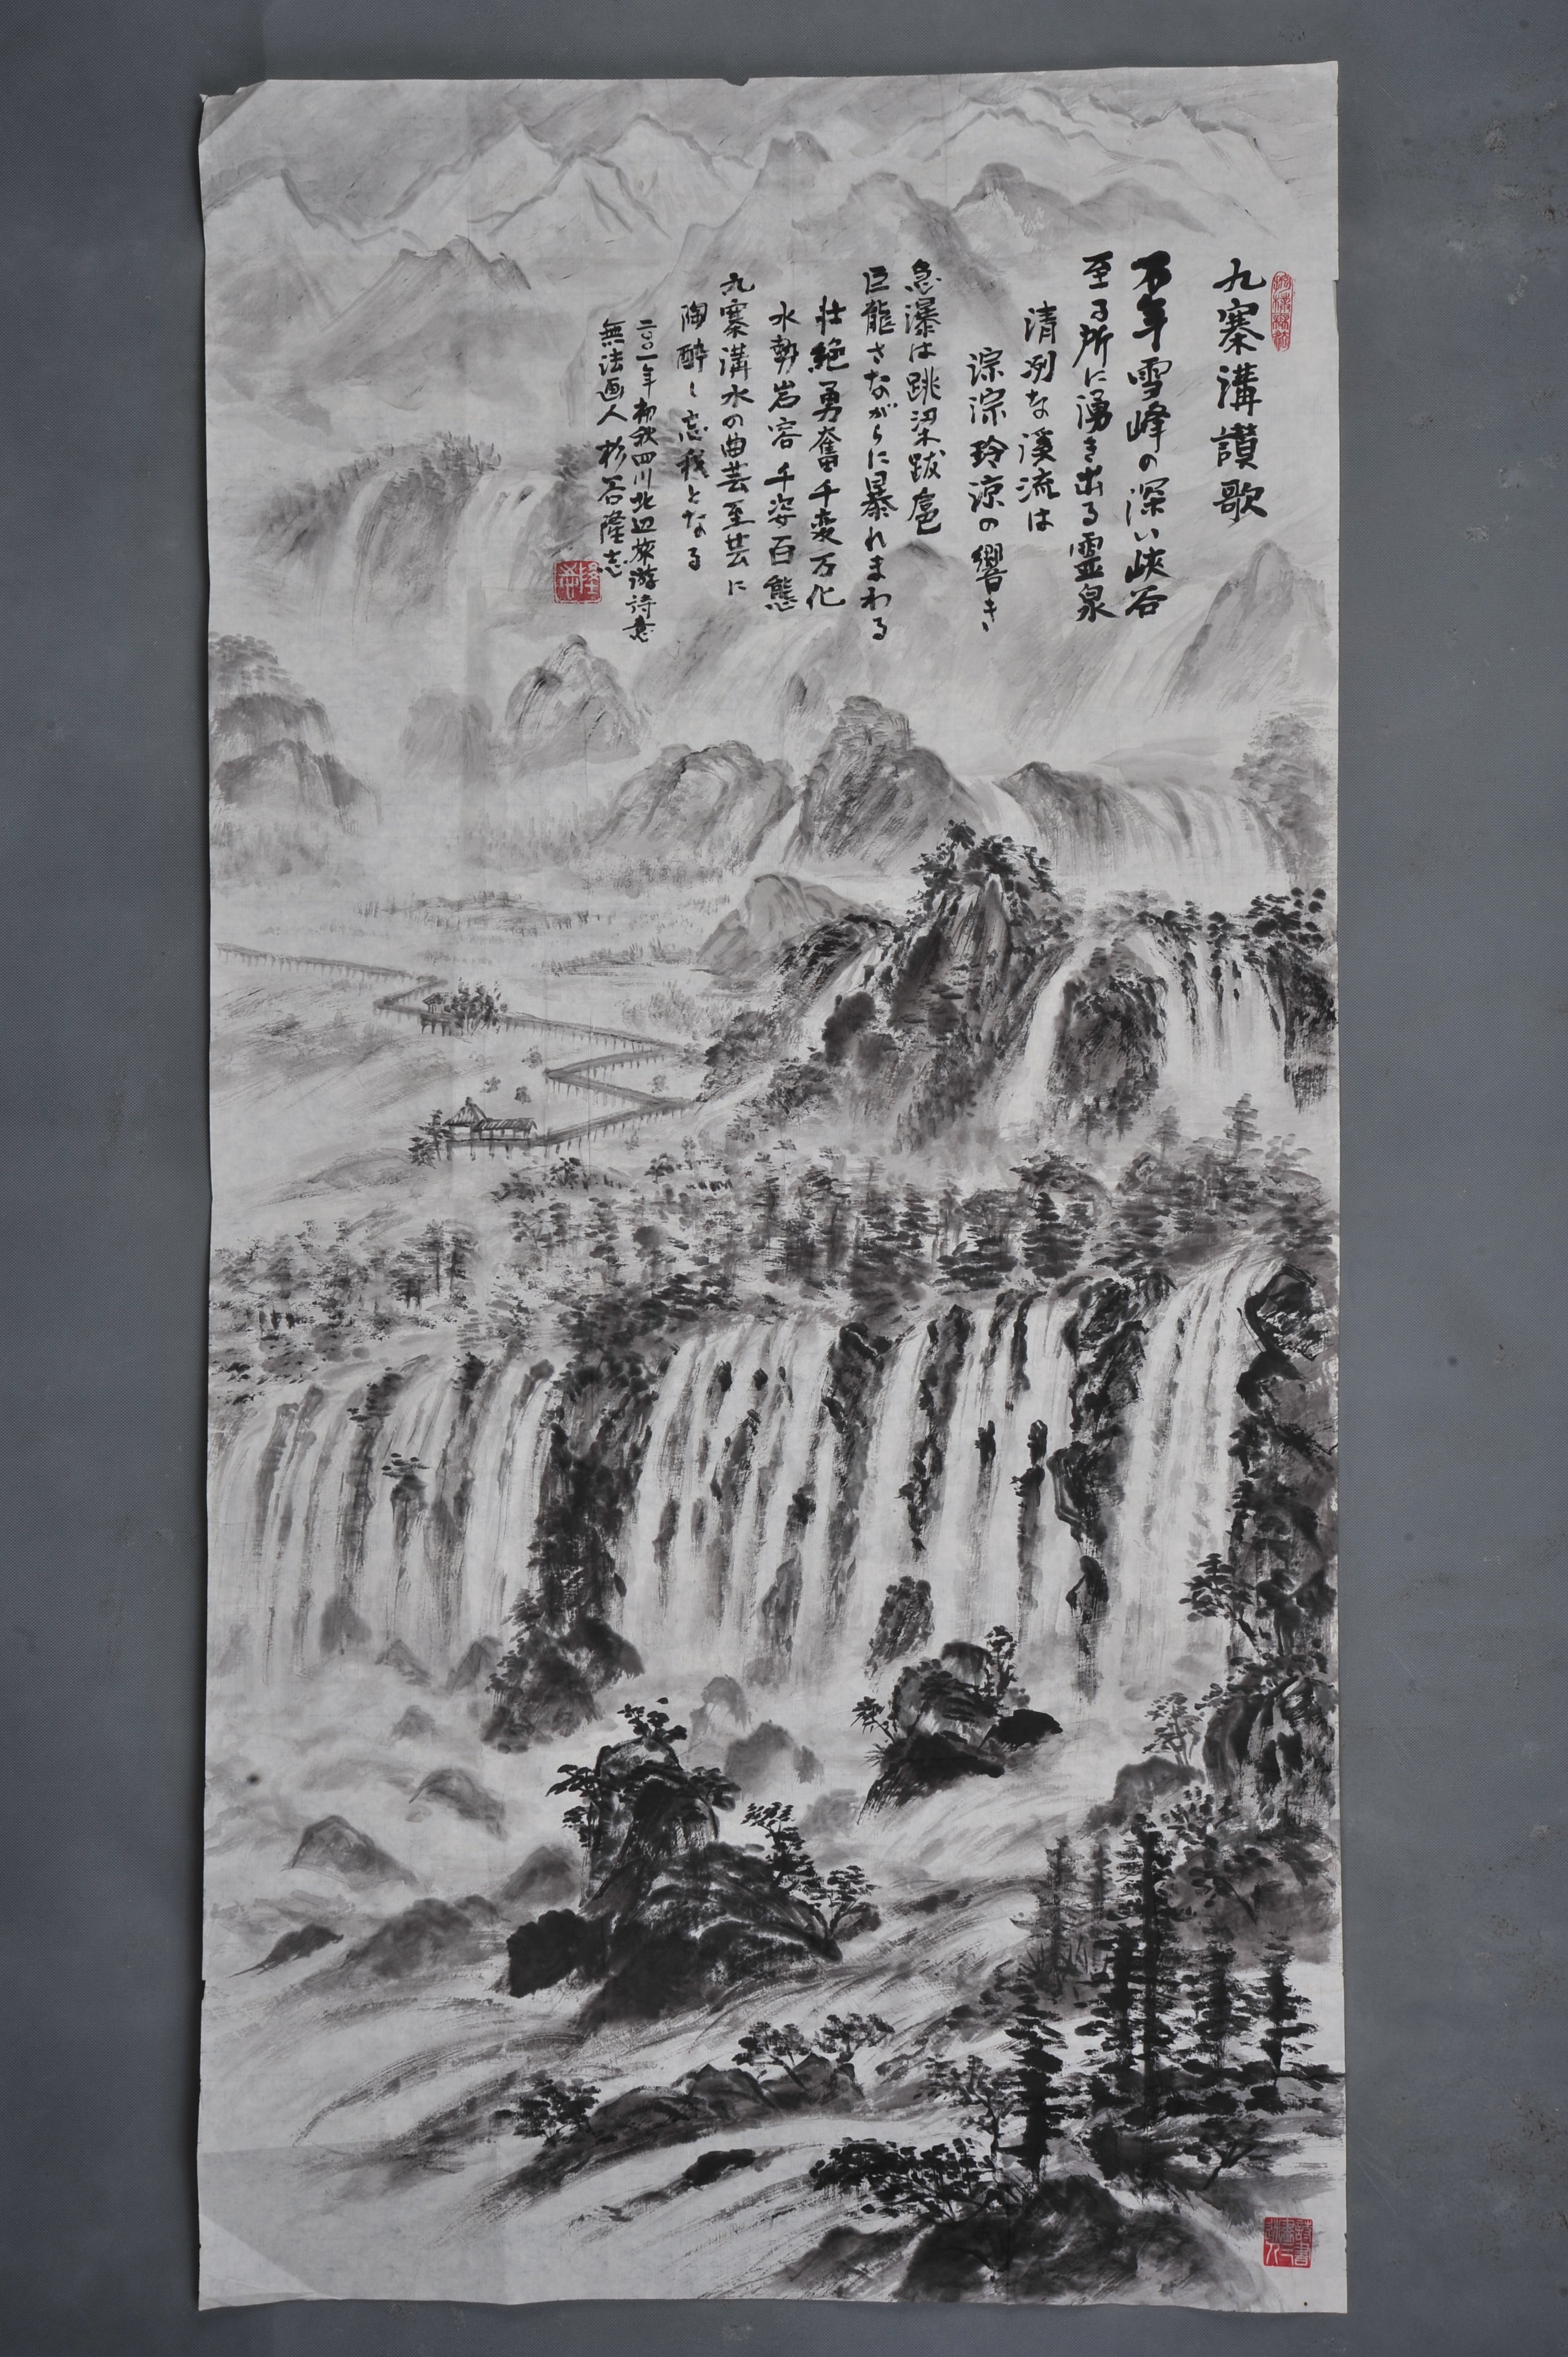 九寨溝讃歌
万年雪峰の深い峡谷
至る所に湧き出る霊泉
清冽な溪流は
淙淙玲涼の響き、
急瀑は跳梁跋扈
巨龍さながらに暴れまわる
壮絶勇奮千変万化
水勢岩容千姿百態
九寨溝水の曲芸至芸に
陶酔し忘我となる
二〇〇一年初秋四川北辺旅游詩意
無法画人 杉谷隆志
隆志